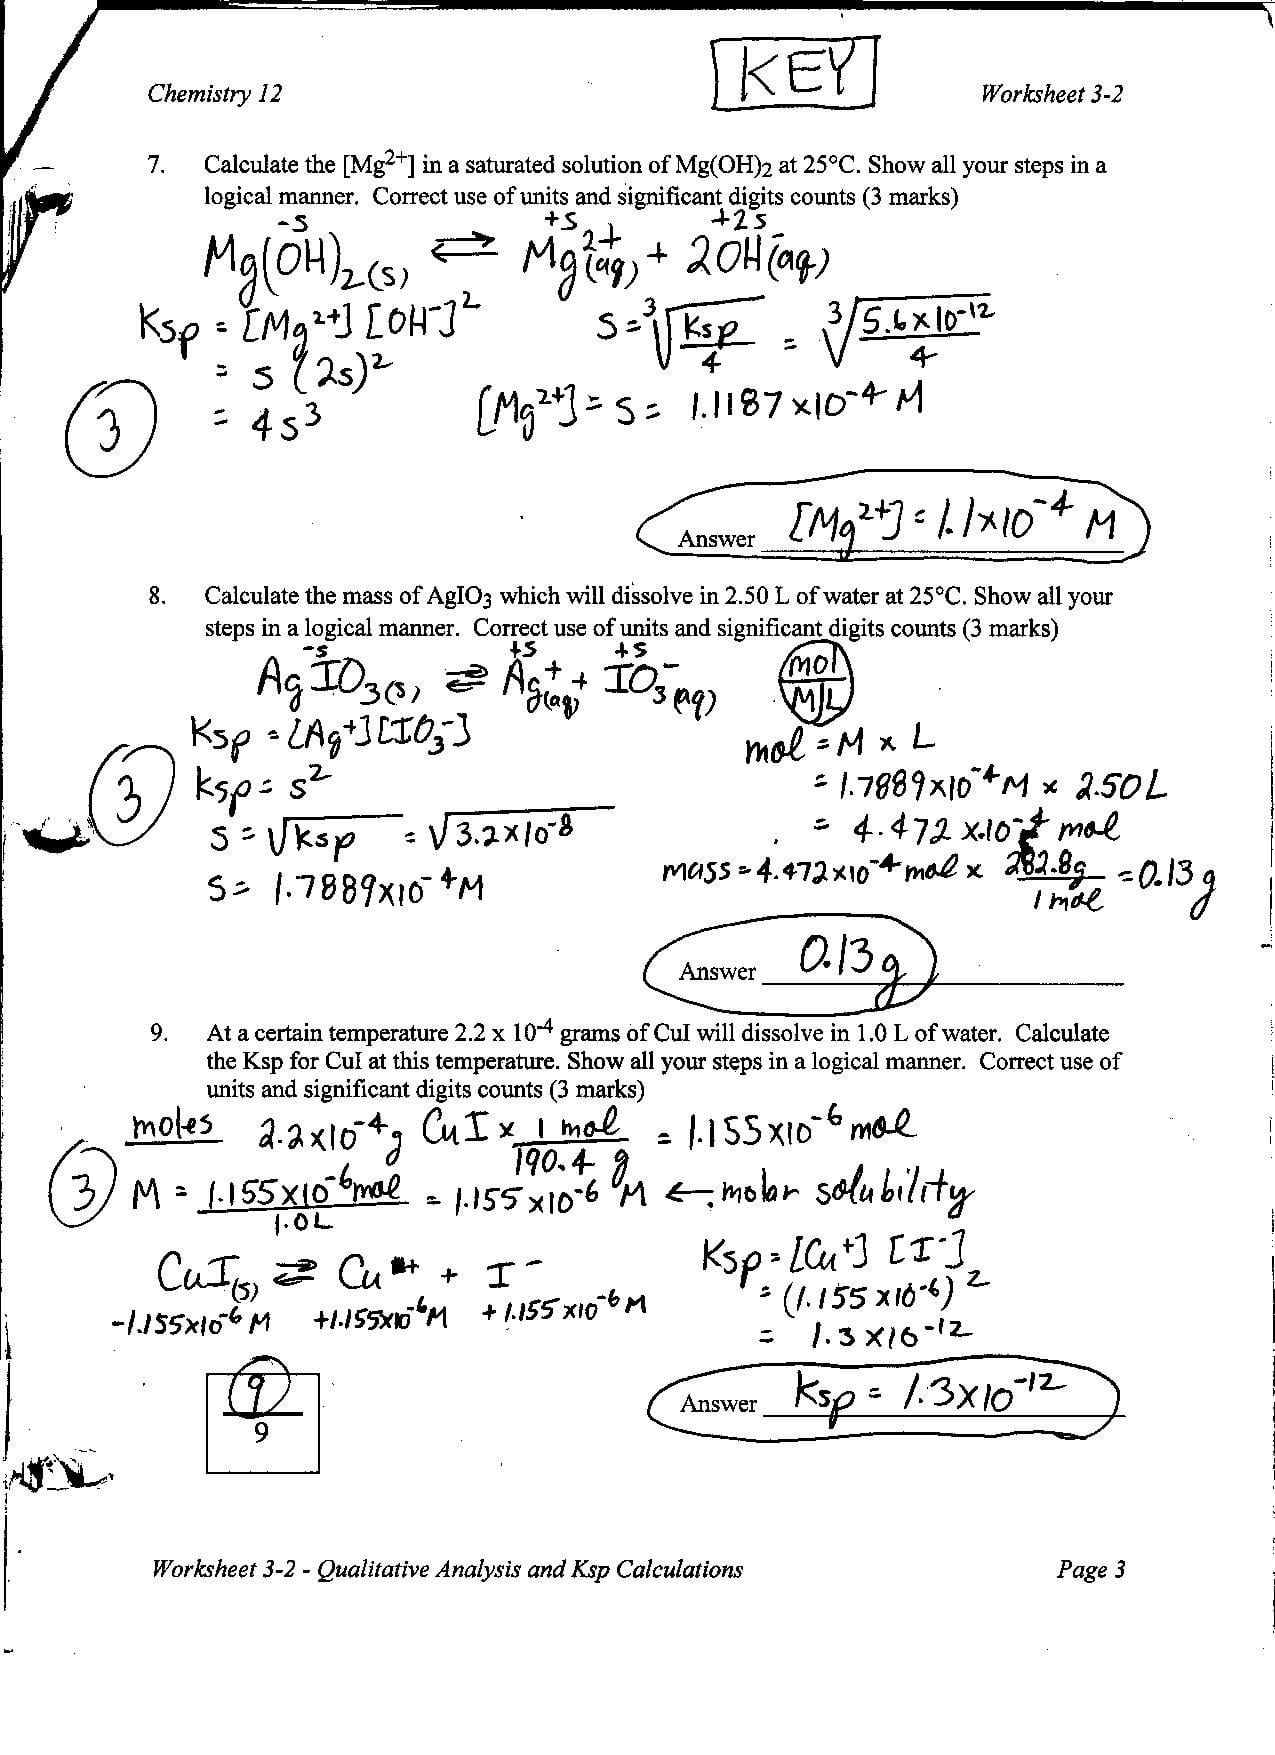 KEY
Chemistry 12 Worksheet 3-2
7. Calculate the [Mg2+] in a saturated solution of Mg(OH)2 at 25°C. Show all your steps in a
logical manner. Correct use of units and significant digits counts (3 marks)
-s +s +2s
Mg(OH)2(s) ⇌ Mg2+(aq) + 2OH-(aq)
Ksp = [Mg2+] [OH-]2 s = 3√Ksp/4 = 3√5.6x10-12/4
= s (2s)2
3 = 4s3 [Mg2+] = s = 1.1187 x10-4 M
Answer [Mg2+] = 1.1x10-4 M
8. Calculate the mass of AgIO3 which will dissolve in 2.50 L of water at 25°C. Show all your
steps in a logical manner. Correct use of units and significant digits counts (3 marks)
-s +s +s
AgIO3(s) ⇌ Ag+(aq) + IO3-(aq) mol
M|L
Ksp = [Ag+][IO3-] mol = M x L
3 Ksp = s2 = 1.7889x10-4 M x 2.50L
s = √Ksp = √3.2x10-8 = 4.472 x10-4 mol
s = 1.7889x10-4 M mass = 4.472x10-4 mol x 282.8g/1 mol = 0.13 g
Answer 0.13g
9. At a certain temperature 2.2 x 10-4 grams of CuI will dissolve in 1.0 L of water. Calculate
the Ksp for CuI at this temperature. Show all your steps in a logical manner. Correct use of
units and significant digits counts (3 marks)
moles 2.2x10-4 g CuI x 1 mol/190.4 g = 1.155x10-6 mol
3 M = 1.155x10-6 mol/1.0L = 1.155x10-6 M ← molar solubility
CuI(s) ⇌ Cu+ + I- Ksp = [Cu+] [I-]
-1.155x10-6 M +1.155x10-6 M +1.155x10-6 M = (1.155x10-6)2
= 1.3x10-12
9
9
Answer Ksp = 1.3x10-12
Worksheet 3-2 - Qualitative Analysis and Ksp Calculations Page 3